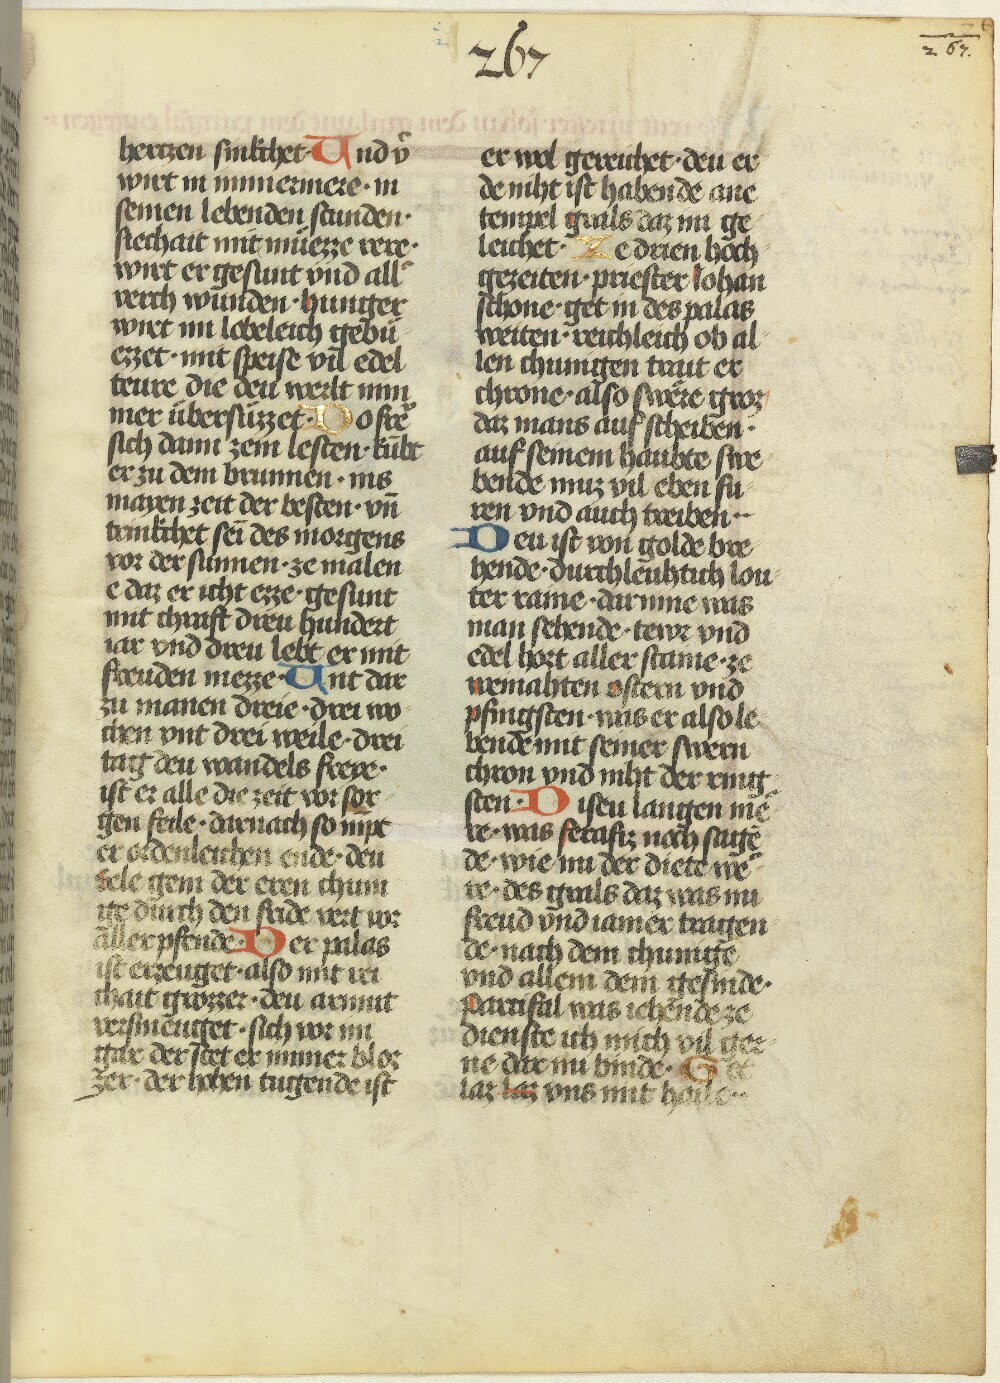 267
267.
hertzen sinkchet· Und v̄
wirt in nimmermere· in
seinen lebenden stunden·
siechait mit müezze vere·
wirt er gesunt vnd all
verch wunden· hunger
wirt im lobeleich gebu
ezzet· mit speise vil edel
teure die deu werlt nim
mer übersüzzet· So
sich dann zem lesten· kübt
er zu dem brunnen· ins
mayen zeit der besten· vn̄
trinkchet sein des morgens
vor der sunnen· ze malen
e daz er icht ezze· gesunt
mit chraft dreu hundert
iar vnd dreu lebt er mit
freuden mezze· Unt dar
zu manen dreie· drei wo
chen vnt drei weile· drei
tag deu wandels freye·
ist er alle die zeit vor sor
gen feile· darnach so nipt
er ordenleichen ende· deu
sele gein der eren chum
ge durch den fride vert vor
aller pfende· Der palas
ist erzeuget· also mit rei
chait grozzer· deu armut
versmeuget· sich vor im
gar der stet er immer bloz
zer· der hohen tugende ist
er wol gereichet· deu er
de niht ist habende ane
tempel grals daz im ge
leichet· Ze drien hoch
gezeiten· priester Iohan
schone· get in des palas
weiten· reichleich ob al
len chunigen trait er
chrone· also swere groz
daz mans auf scheiben·
auf seinem haubte swe
bende muz vil eben fu
ren vnd auch treiben··
Deu ist von golde bre
hende· durchleuhtich lou
ter raine· darinne was
man sehende· tewr vnd
edel hort aller staine· ze
weinahten ostern vnd
pfingsten· was er also le
bende mit seiner swern
chron vnd niht der ring
sten· Diseu langen me
re· was serafiz noch sage
de· wie nu der diete we
re· des grals daz was nu
freud vnd iamer tragen
de· nach dem chunige
vnd allem dem gesinde·
Partifal was iehende ze
dienste ich mich vil ger
ne dar nu binde· Got
laz laz vns mit haile··